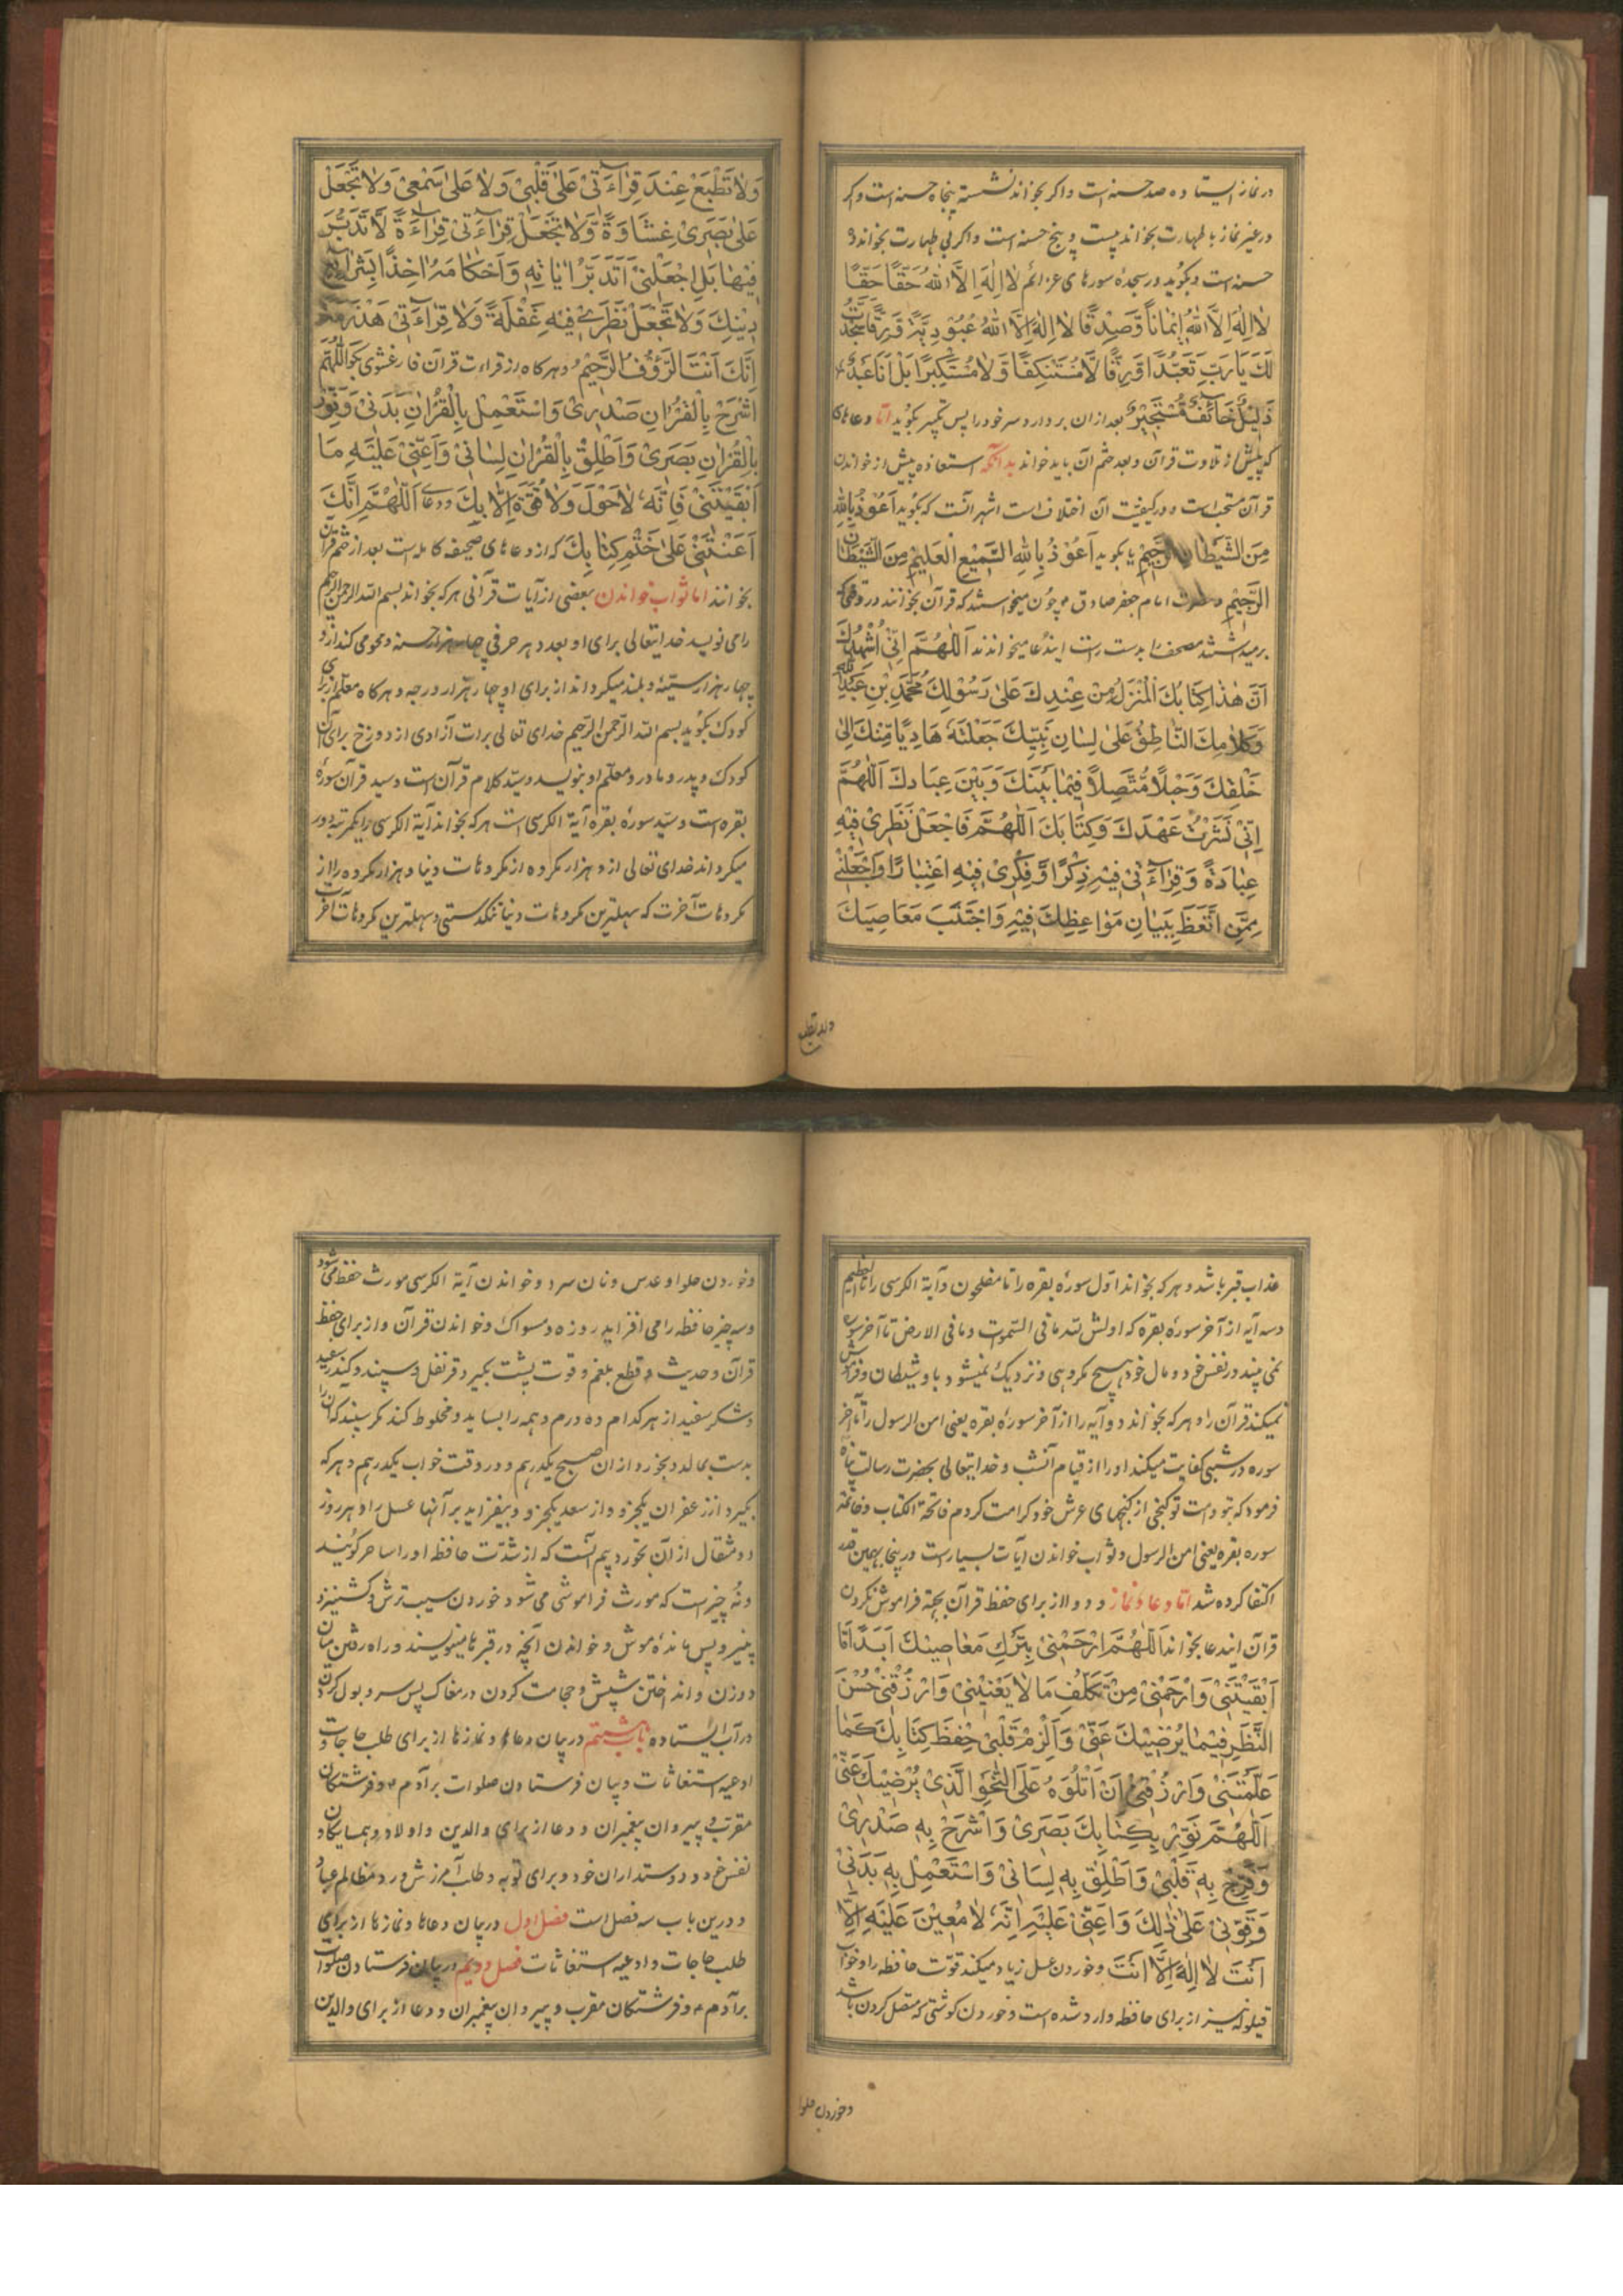 در نماز ایستاده صد حسنه است و اگر بخواند نشسته پنجاه حسنه است و اگر
در غیر نماز با طهارت بخواند بیست و پنج حسنه است و اگر بی طهارت بخواند ده
حسنه است و بگوید در سجدهٔ سورهای عزائم لَا اِلٰهَ اِلَّا اللّٰهُ حَقًّا حَقًّا
لَا اِلٰهَ اِلَّا اللّٰهُ اِیمَانًا وَّصِدْقًا لَا اِلٰهَ اِلَّا اللّٰهُ عُبُوْدِیَّةً وَّرِقًّا سَجَدْتُ
لَكَ یَا رَبِّ تَعَبُّدًا وَّرِقًّا لَا مُسْتَنْکِفًا وَّلَا مُسْتَکْبِرًا بَلْ اَنَا عَبْدٌ
ذَلِیْلٌ خَائِفٌ مُسْتَجِیْرٌ بعد ازان بردارد سر خود را پس تکبیر بگوید اما دعاهای
که پیش از تلاوت قرآن و بعد ختم آن باید خواند بدانکه استعاذه پیش از خواندن
قرآن مستحب است و در کیفیت آن اختلاف است اشهر آنست که بگوید اَعُوْذُ بِاللّٰهِ
مِنَ الشَّیْطَانِ الرَّجِیْمِ یا بگوید اَعُوْذُ بِاللّٰهِ السَّمِیْعِ الْعَلِیْمِ مِنَ الشَّیْطَانِ
الرَّجِیْمِ و حضرت امام جعفر صادق ع چون میخواستند که قرآن بخوانند در وقتی که
برمیداشتند مصحف را بدست راست ایندعا میخواندند اَللّٰهُمَّ اِنِّیْ اُشْهِدُكَ
اَنَّ هٰذَا کِتَابُكَ الْمُنْزَلُ مِنْ عِنْدِكَ عَلٰی رَسُوْلِكَ مُحَمَّدِ بْنِ عَبْدِ اللّٰهِ
وَکَلَامِكَ النَّاطِقُ عَلٰی لِسَانِ نَبِیِّكَ جَعَلْتَهُ هَادِیًا مِّنْكَ اِلٰی
خَلْقِكَ وَحَبْلًا مُّتَّصِلًا فِیْمَا بَیْنَكَ وَبَیْنَ عِبَادِكَ اَللّٰهُمَّ
اِنِّیْ نَشَرْتُ عَهْدَكَ وَکِتَابَكَ اَللّٰهُمَّ فَاجْعَلْ نَظَرِیْ فِیْهِ
عِبَادَةً وَقِرَاءَتِیْ فِیْهِ ذِکْرًا وَّفِکْرِیْ فِیْهِ اعْتِبَارًا وَاجْعَلْنِیْ
مِمَّنِ اتَّعَظَ بِبَیَانِ مَوَاعِظِكَ فِیْهِ وَاجْتَنَبَ مَعَاصِیَكَ
وَلَا تَطْبَعْ عِنْدَ قِرَاءَتِیْ عَلٰی قَلْبِیْ وَلَا عَلٰی سَمْعِیْ وَلَا تَجْعَلْ
عَلٰی بَصَرِیْ غِشَاوَةً وَّلَا تَجْعَلْ قِرَاءَتِیْ قِرَاءَةً لَّا تَدَبُّرَ
فِیْهَا بَلِ اجْعَلْنِیْ اَتَدَبَّرُ اٰیَاتِهِ وَاَحْکَامَهُ اٰخِذًا بِشَرَائِعِ
دِیْنِكَ وَلَا تَجْعَلْ نَظَرِیْ فِیْهِ غَفْلَةً وَلَا قِرَاءَتِیْ هَذْرَمَةً
اِنَّكَ اَنْتَ الرَّؤُفُ الرَّحِیْمُ و هرگاه از قراءت قرآن فارغ شوی بگو اَللّٰهُمَّ
اشْرَحْ بِالْقُرْاٰنِ صَدْرِیْ وَاسْتَعْمِلْ بِالْقُرْاٰنِ بَدَنِیْ وَنَوِّرْ
بِالْقُرْاٰنِ بَصَرِیْ وَاَطْلِقْ بِالْقُرْاٰنِ لِسَانِیْ وَاَعِنِّیْ عَلَیْهِ مَا
اَبْقَیْتَنِیْ فَاِنَّهُ لَا حَوْلَ وَلَا قُوَّةَ اِلَّا بِكَ و دعای اَللّٰهُمَّ اِنَّكَ
اَعَنْتَنِیْ عَلٰی خَتْمِ کِتَابِكَ که از دعاهای صحیفه کامله است بعد از ختم قرآن
بخوانند اما ثواب خواندن بعضی از آیات قرآنی هر که بخواند بسم الله الرحمن الرحیم
را می نویسد خدایتعالی برای او بعدد هر حرفی چهار هزار حسنه و محو می کند ازو
چهار هزار سیئه و بلند میگرداند از برای او چهار هزار درجه و هرگاه معلم از برای
کودك بگوید بسم الله الرحمن الرحیم خدای تعالی برات آزادی از دوزخ برای آن
کودك و پدر و مادر و معلم او بنویسد و سید کلام قرآن است و سید قرآن سورهٔ
بقره است و سید سورهٔ بقره آیة الکرسی است هر که بخواند آیة الکرسی را یکمرتبه دور
میگرداند خدای تعالی ازو هزار مکروه از مکروهات دنیا و هزار مکروه را از
مکروهات آخرت که سهلترین مکروهات دنیا تنگدستی و سهلترین مکروهات آخرت
عذاب قبر باشد و هر که بخواند اول سورهٔ بقره را تا مفلحون و آیة الکرسی را تا العظیم
و سه آیه از آخر سورهٔ بقره که اولش لله ما فی السموات و ما فی الارض تا آخر سوره
نمی بیند در نفس خود و مال خود هیچ مکروهی و نزدیك نمیشود باو شیطان و فراموش
نمیکند قرآن را و هر که بخواند دو آیه را از آخر سورهٔ بقره یعنی امن الرسول را تا آخر
سوره در شبی کفایت میکند او را از قیام آنشب و خدایتعالی بحضرت رسالت پناه
فرمود که بتو و امت تو گنجی از گنجهای عرش خود کرامت کردم فاتحة الکتاب و خاتمه
سوره بقره یعنی امن الرسول و ثواب خواندن آیات بسیار است در اینجا بهمین قدر
اکتفا کرده شد اما دعا و نماز و دوا از برای حفظ قرآن بجهة فراموش نکردن
قرآن ایندعا بخواند اَللّٰهُمَّ ارْحَمْنِیْ بِتَرْكِ مَعَاصِیْكَ اَبَدًا مَا
اَبْقَیْتَنِیْ وَارْحَمْنِیْ مِنْ تَکَلُّفِ مَا لَا یَعْنِیْنِیْ وَارْزُقْنِیْ حُسْنَ
النَّظَرِ فِیْمَا یُرْضِیْكَ عَنِّیْ وَاَلْزِمْ قَلْبِیْ حِفْظَ کِتَابِكَ کَمَا
عَلَّمْتَنِیْ وَارْزُقْنِیْ اَنْ اَتْلُوَهُ عَلَی النَّحْوِ الَّذِیْ یُرْضِیْكَ عَنِّیْ
اَللّٰهُمَّ نَوِّرْ بِکِتَابِكَ بَصَرِیْ وَاشْرَحْ بِهِ صَدْرِیْ
وَفَرِّحْ بِهِ قَلْبِیْ وَاَطْلِقْ بِهِ لِسَانِیْ وَاسْتَعْمِلْ بِهِ بَدَنِیْ
وَقَوِّنِیْ عَلٰی ذٰلِكَ وَاَعِنِّیْ عَلَیْهِ اِنَّهُ لَا مُعِیْنَ عَلَیْهِ اِلَّا
اَنْتَ لَا اِلٰهَ اِلَّا اَنْتَ و خوردن عسل زیاد میکند قوت حافظه را و خواب
قیلوله نیز از برای حافظه وارد شده است و خوردن گوشتی که متصل گردن باشد
و خوردن حلوا
و خوردن حلوا و عدس و نان سرد و خواندن آیة الکرسی مورث حفظ می شود
و سه چیز حافظه را می افزاید روزه و مسواك و خواندن قرآن و از برای حفظ
قرآن و حدیث و قطع بلغم و قوت پشت بگیرد قرنفل و سپند و کندر سفید
و شکر سفید از هر کدام ده درم و همه را بساید و مخلوط کند مگر سپند که آن را
بدست بمالد و بخورد ازان صبح یکدرهم و در وقت خواب یکدرهم و هر که
بگیرد از زعفران یکجزو و از سعد یکجزو و بیفزاید بر آنها عسل را و هر روز
دو مثقال از آن بخورد بیم آنست که از شدت حافظه او را ساحر گویند
و نُه چیز است که مورث فراموشی می شود خوردن سیب ترش و کشنیز و
پنیر و پس ماندهٔ موش و خواندن آنچه در قبرها مینویسند و راه رفتن میان
دو زن و انداختن شپش و حجامت کردن در مغاك پس سر و بول کردن
در آب ایستاده باب هشتم در بیان دعاها و نمازها از برای طلب حاجات و
ادعیه استغاثات و بیان فرستادن صلوات بر آدم ع و فرشتگان
مقرب و پیروان پیغمبران و دعا از برای والدین و اولاد و همسایگان و
نفس خود و دوستداران خود و برای توبه و طلب آمرزش و رد مظالم عباد
و درین باب سه فصل است فصل اول در بیان دعاها و نمازها از برای
طلب حاجات و ادعیه استغاثات فصل دویم در بیان فرستادن صلوات
بر آدم ع و فرشتگان مقرب و پیروان پیغمبران و دعا از برای والدین